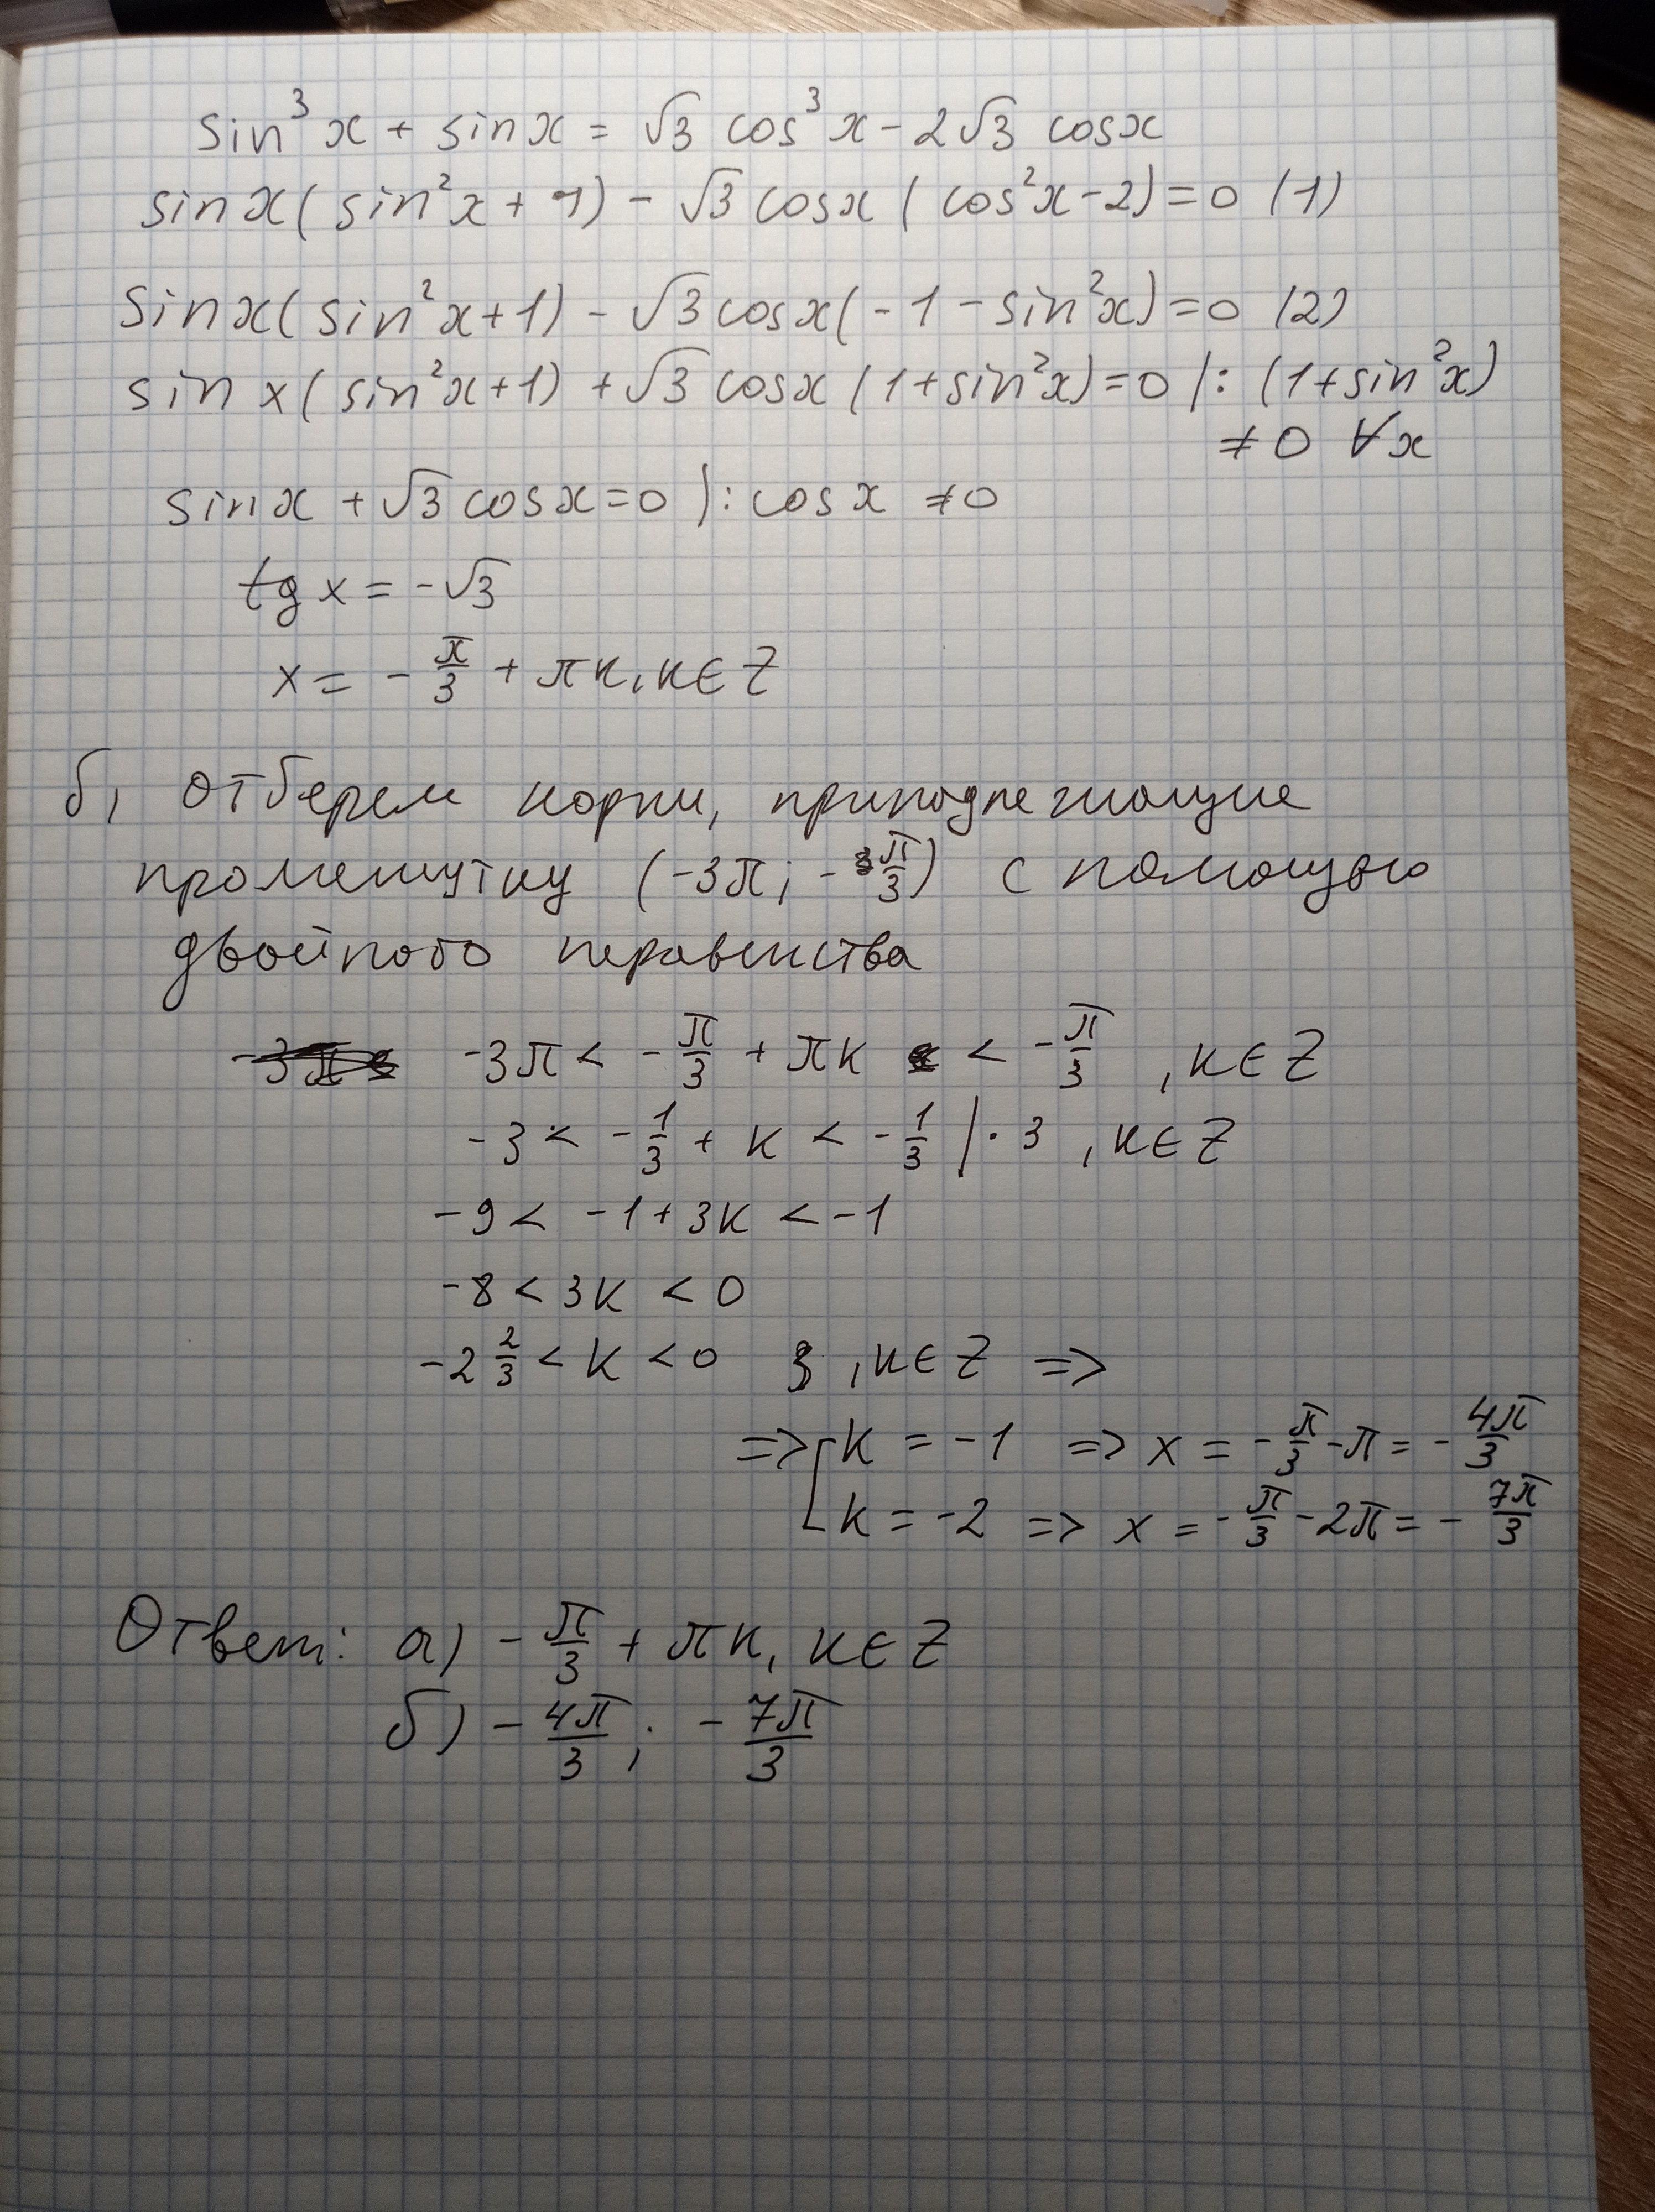 sin³x + sinx = √3 cos³x - 2√3 cosx
sinx(sin²x + 1) - √3 cosx (cos²x - 2) = 0 (1)
sinx(sin²x+1) - √3cosx(-1 - sin²x) = 0 (2)
sin x(sin²x+1) + √3 cosx (1+sin²x) = 0 |: (1+sin²x)
≠ 0 ∀x
sinx + √3 cosx = 0 |: cosx ≠ 0
tg x = -√3
x = -π/3 + πk, k∈Z
б) отберем корни, принадлежащие
промежутку (-3π; -π/3) с помощью
двойного неравенства
-3π < -π/3 + πk < -π/3 , k∈Z
-3 < -1/3 + k < -1/3 | · 3 , k∈Z
-9 < -1 + 3k < -1
-8 < 3k < 0
-2 2/3 < k < 0 , k∈Z =>
=> [ k = -1 => x = -π/3 - π = -4π/3
k = -2 => x = -π/3 - 2π = -7π/3
Ответ: а) -π/3 + πk, k∈Z
б) -4π/3 ; -7π/3